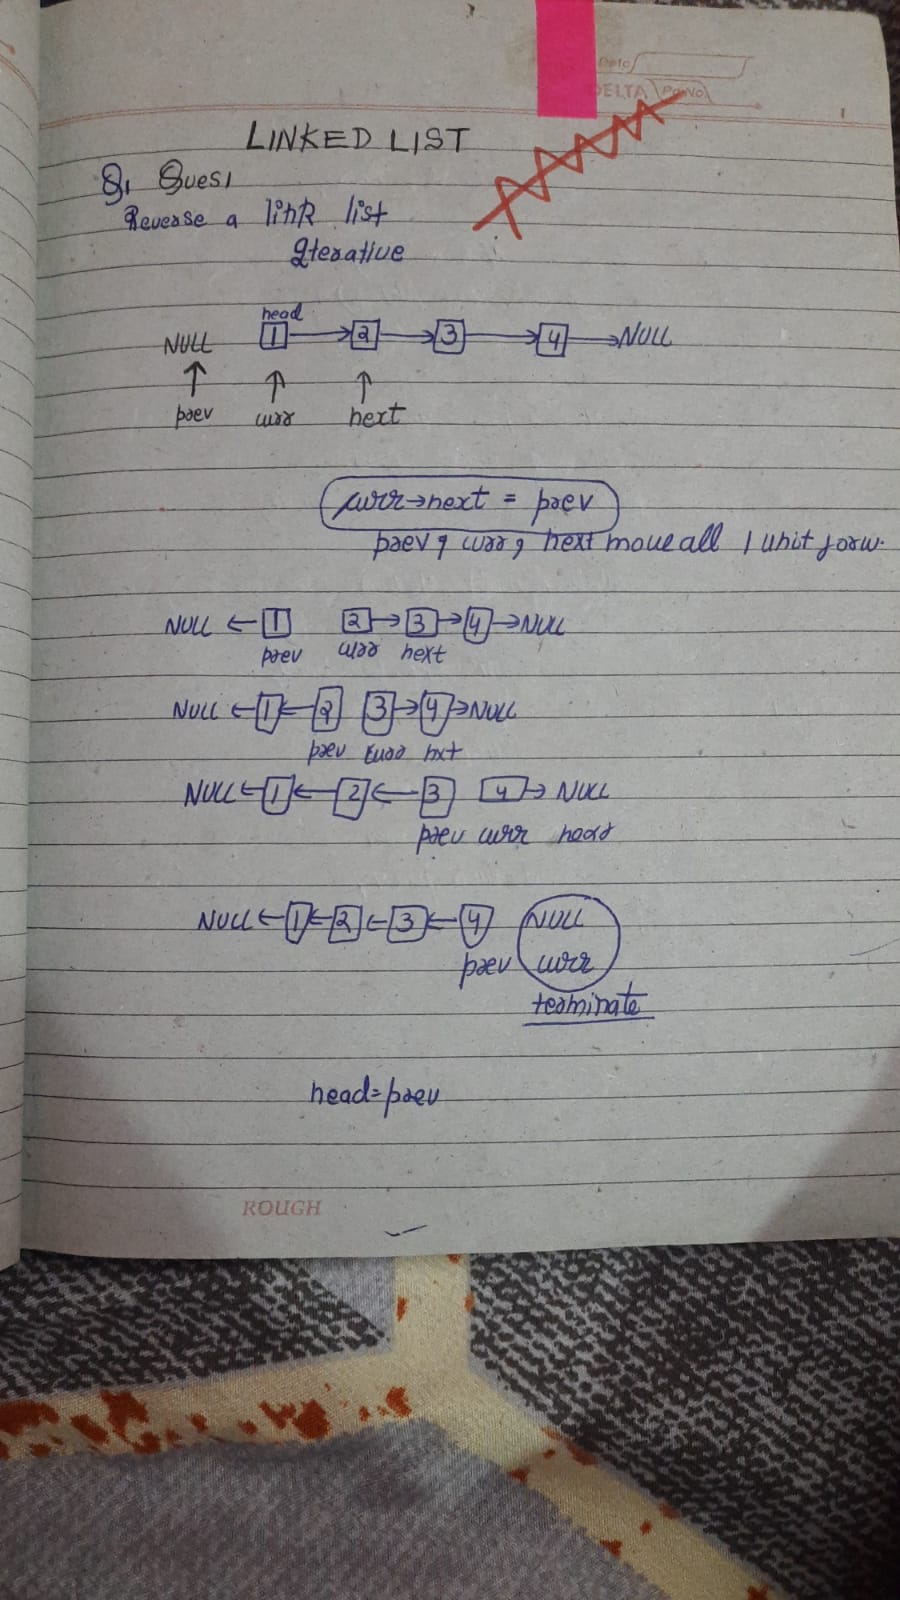 Date
DELTA Pg No
LINKED LIST
Q1 Ques1
Reverse a link list
Iterative
head
NULL 1 → 2 → 3 → 4 → NULL
↑ ↑ ↑
prev curr next
curr→next = prev
prev, curr, next move all 1 unit forw.
NULL ← 1 2 → 3 → 4 → NULL
prev curr next
NULL ← 1 ← 2 3 → 4 → NULL
prev curr nxt
NULL ← 1 ← 2 ← 3 4 → NULL
prev curr
NULL ← 1 ← 2 ← 3 ← 4 NULL
prev curr
terminate
head=prev
ROUGH